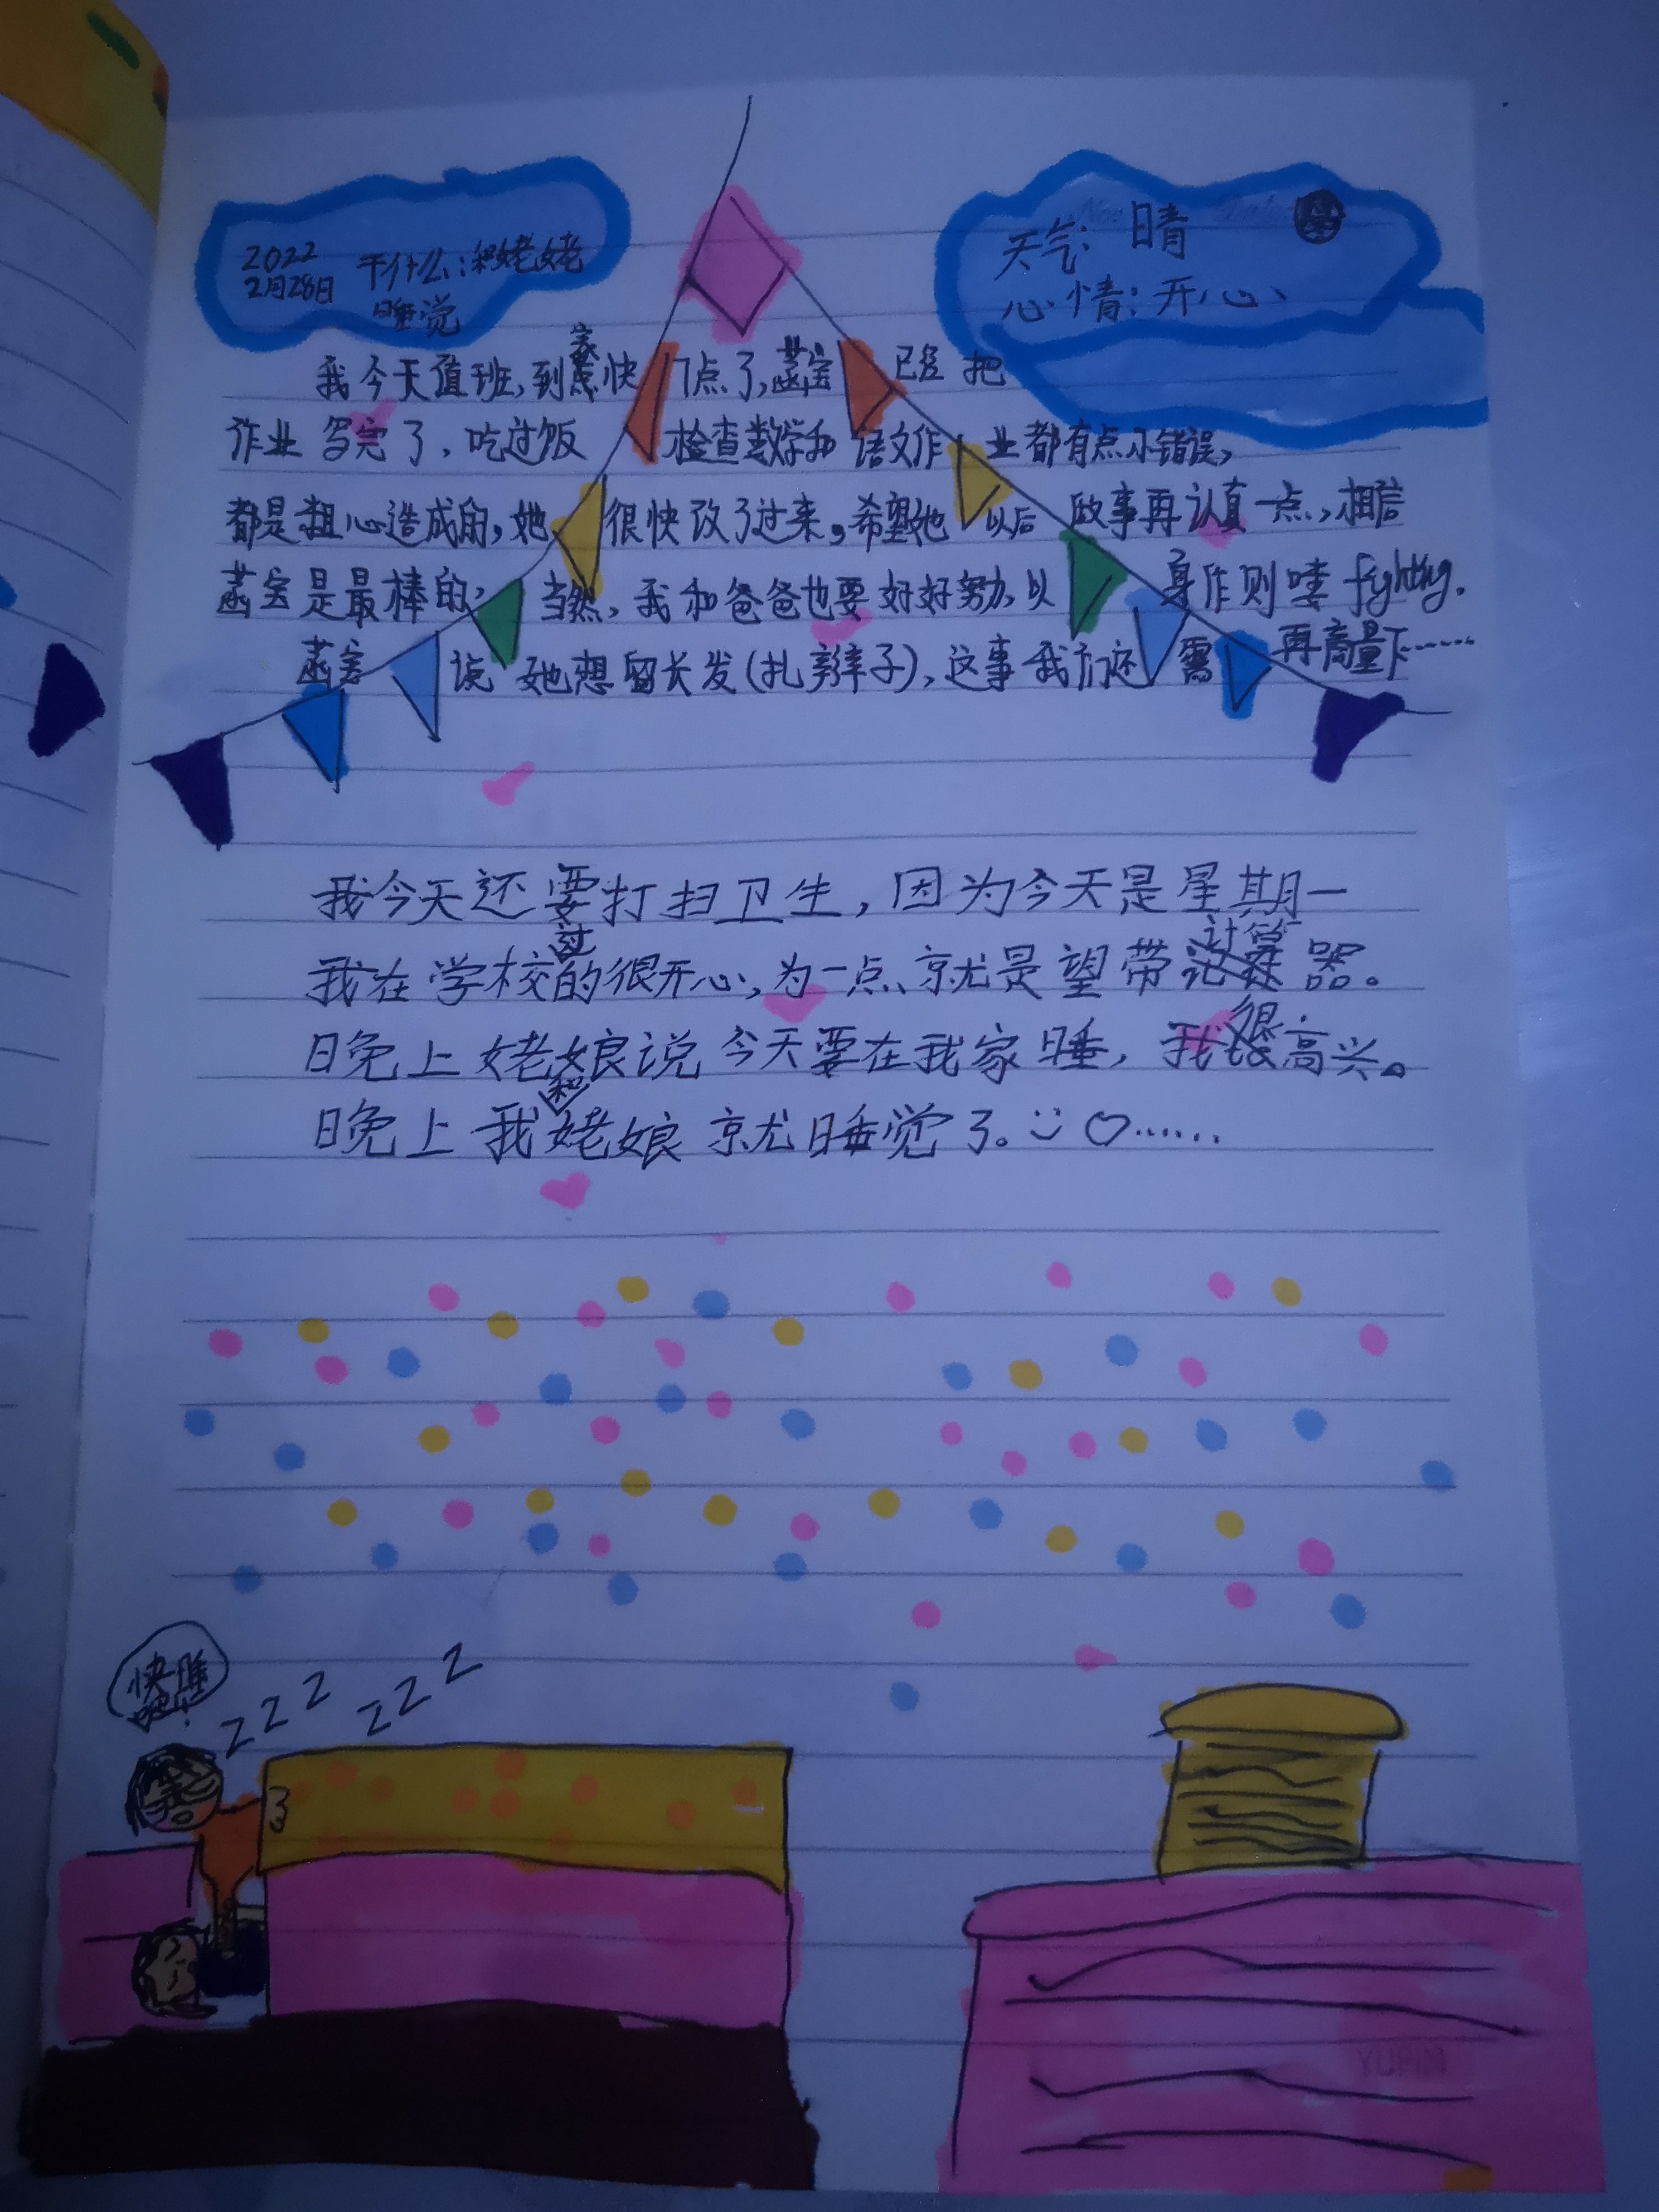 2022
2月28日
干什么:和姥姥
睡觉
天气:晴
心情:开心
我今天值班,到家快7点了,菡宝已经把
作业写完了,吃过饭检查数学和语文作业都有点小错误,
都是粗心造成的,她很快改了过来。希望她以后做事再认真一点,相信
菡宝是最棒的,当然,我和爸爸也要好好努力,以身作则喽fighting.
菡宝说她想留长发(扎辫子),这事我们还需再商量下……
我今天还要打扫卫生,因为今天是星期一
我在学校过的很开心,为一点就是望带计算器。
晚上姥娘说今天要在我家睡,我很高兴。
晚上我和姥娘就睡觉了。:) ♡……
快睡吧!
zzz zzz
YUPIN